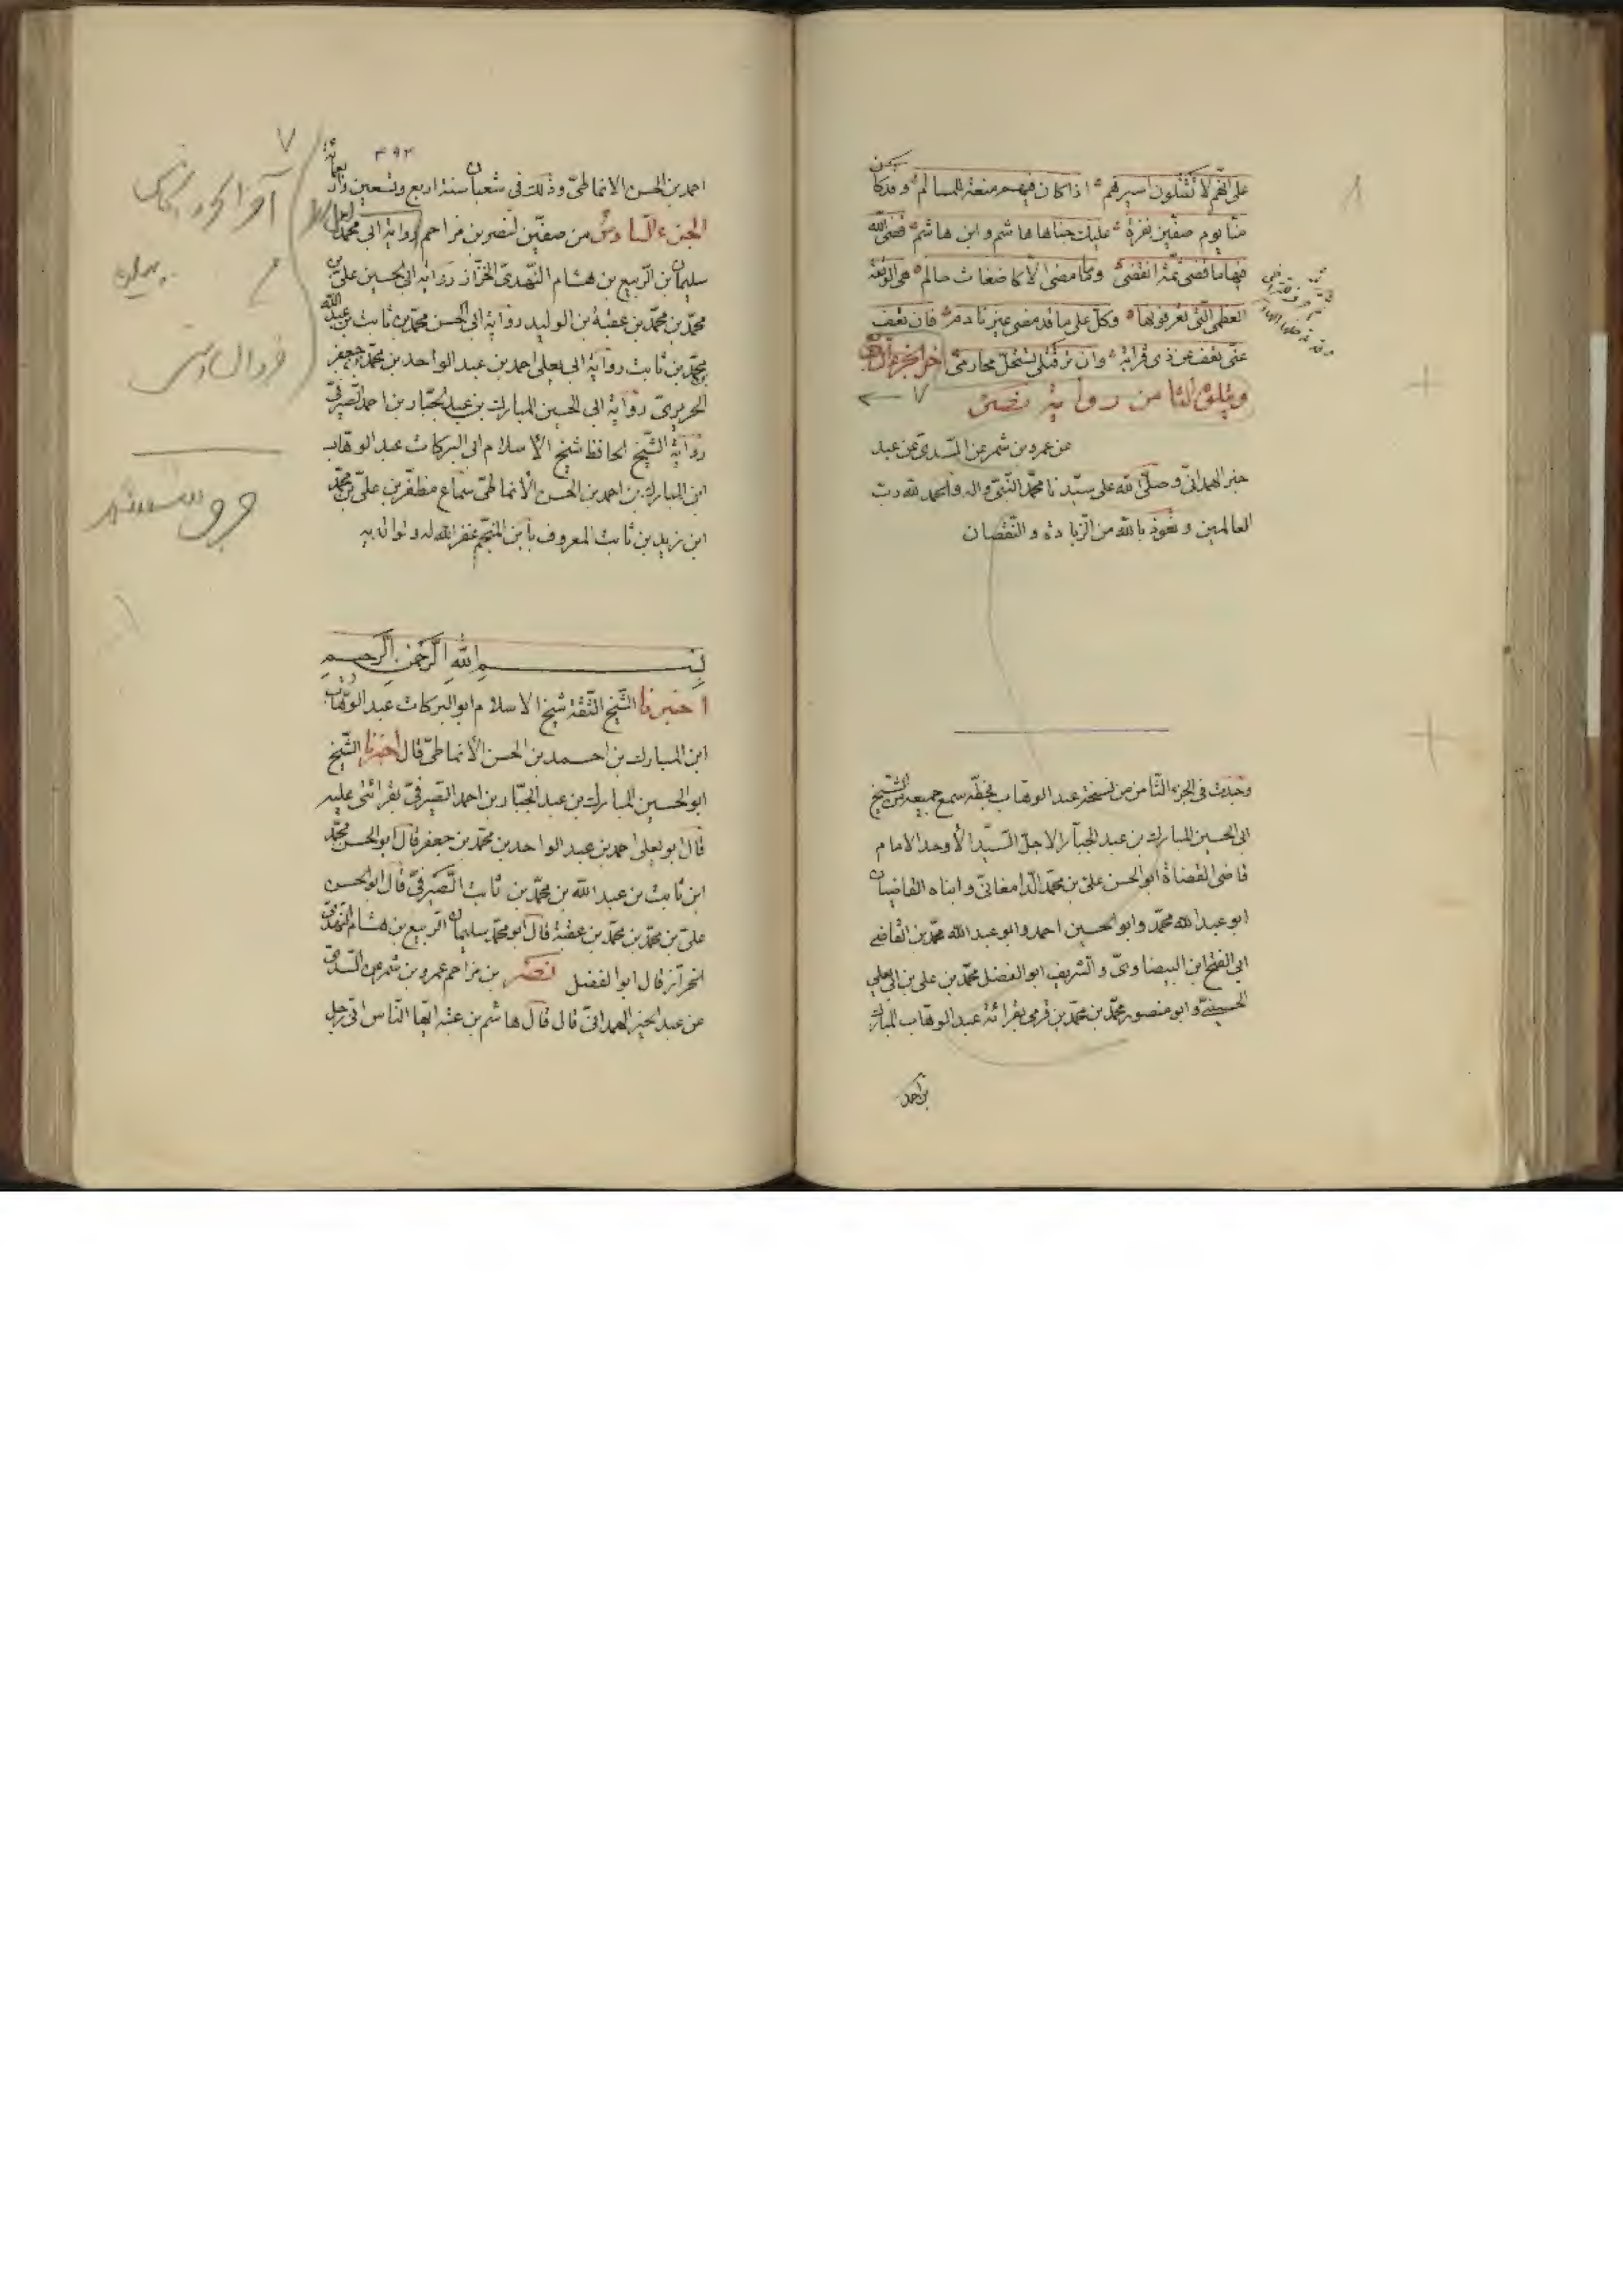 على انهم لا يقتلون اسيرهم اذا كان فيهم منعة للمسالم وقد كان
منا يوم صفين نفرة عليك جناها هاشم وابن هاشم قضى الله
فيها ما قضى ثمة انقضى وما مضى الا كاضغاث حالم هى الوقعة
العظمى التى تعرفونها وكل على ما قد مضى غير نادم فان تعف
عنى تعف عن ذى قرابة وان تر قتلى تستحل محارمى اخر الجزء
ويتلوه الثامن رواية نصر
٧
عن عمرو بن شمر عن السدى عن عبد
خير الهمدانى وصلى الله على سيدنا محمد النبى واله والحمد لله رب
العالمين ونعوذ بالله من الزيادة والنقصان
وجدت فى الجزء الثامن من نسخة عبد الوهاب بخطه سمع جميعه من الشيخ
ابى الحسين المبارك بن عبد الجبار الاجل السيد الأوحد الامام
قاضى القضاة ابو الحسن على بن محمد الدامغانى وابناه القاضيان
ابو عبد الله محمد وابو الحسين احمد وابو عبد الله محمد بن القاضى
ابى الفتح ابن البيضاوى والشريف ابو الفضل محمد بن على بن ابى يعلى
الحسينى وابو منصور محمد بن محمد بن قرمى بقرائة عبد الوهاب المبارك
بن احمد
٤٩٣
احمد بن الحسن الانماطى وذلك فى شعبان سنة اربع وتسعين واربعمائة
الجزء السادس من صفين لنصر بن مزاحم رواية ابى محمد
سليمان بن الربيع بن هشام النهدى الخزاز رواية ابى الحسين على بن
محمد بن محمد بن عقبة بن الوليد رواية ابى الحسن محمد بن ثابت بن عبد الله
بن محمد بن ثابت رواية ابى يعلى احمد بن عبد الواحد بن محمد بن جعفر
الحريرى رواية ابى الحسين المبارك بن عبد الجبار بن احمد الصيرفى
رواية الشيخ الحافظ شيخ الأسلام ابى البركات عبد الوهاب
ابن المبارك بن احمد بن الحسن الأنماطى سماع مظفر بن على بن محمد
ابن زيد بن ثابت المعروف بابن المنجم غفر الله له ولوالديه
بسم الله الرحمن الرحيم
اخبرنا الشيخ الثقة شيخ الاسلام ابو البركات عبد الوهاب
ابن المبارك بن احمد بن الحسن الأنماطى قال اخبرنا الشيخ
ابو الحسين المبارك بن عبد الجبار بن احمد الصيرفى بقرائتى عليه
قال ابو يعلى احمد بن عبد الواحد بن محمد بن جعفر قال ابو الحسن محمد
ابن ثابت بن عبد الله بن محمد بن ثابت الصيرفى قال ابو الحسن
على بن محمد بن محمد بن عقبة قال ابو محمد سليمان الربيع بن هشام النهدى
الخزاز قال ابو الفضل نصر بن مزاحم عمرو بن شمر عن السدى
عن عبد الخير الهمدانى قال قال هاشم بن عتبة ايها الناس انى رجل
٧